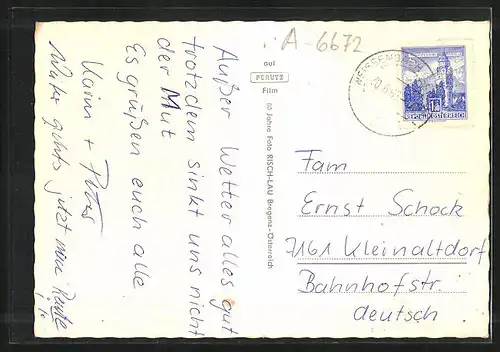 Außer Wetter alles gut
trotzdem sinkt uns nicht
der Mut
Es grüßen euch alle
Karin +
jetzt
auf
PERUTZ
Film
60 Jahre Foto RISCH-LAU Bregenz-Österreich
A-6672
REPUBLIK ÖSTERREICH
Fam
Ernst Schock
7161 Kleinaltdorf
Bahnhofstr.
deutsch